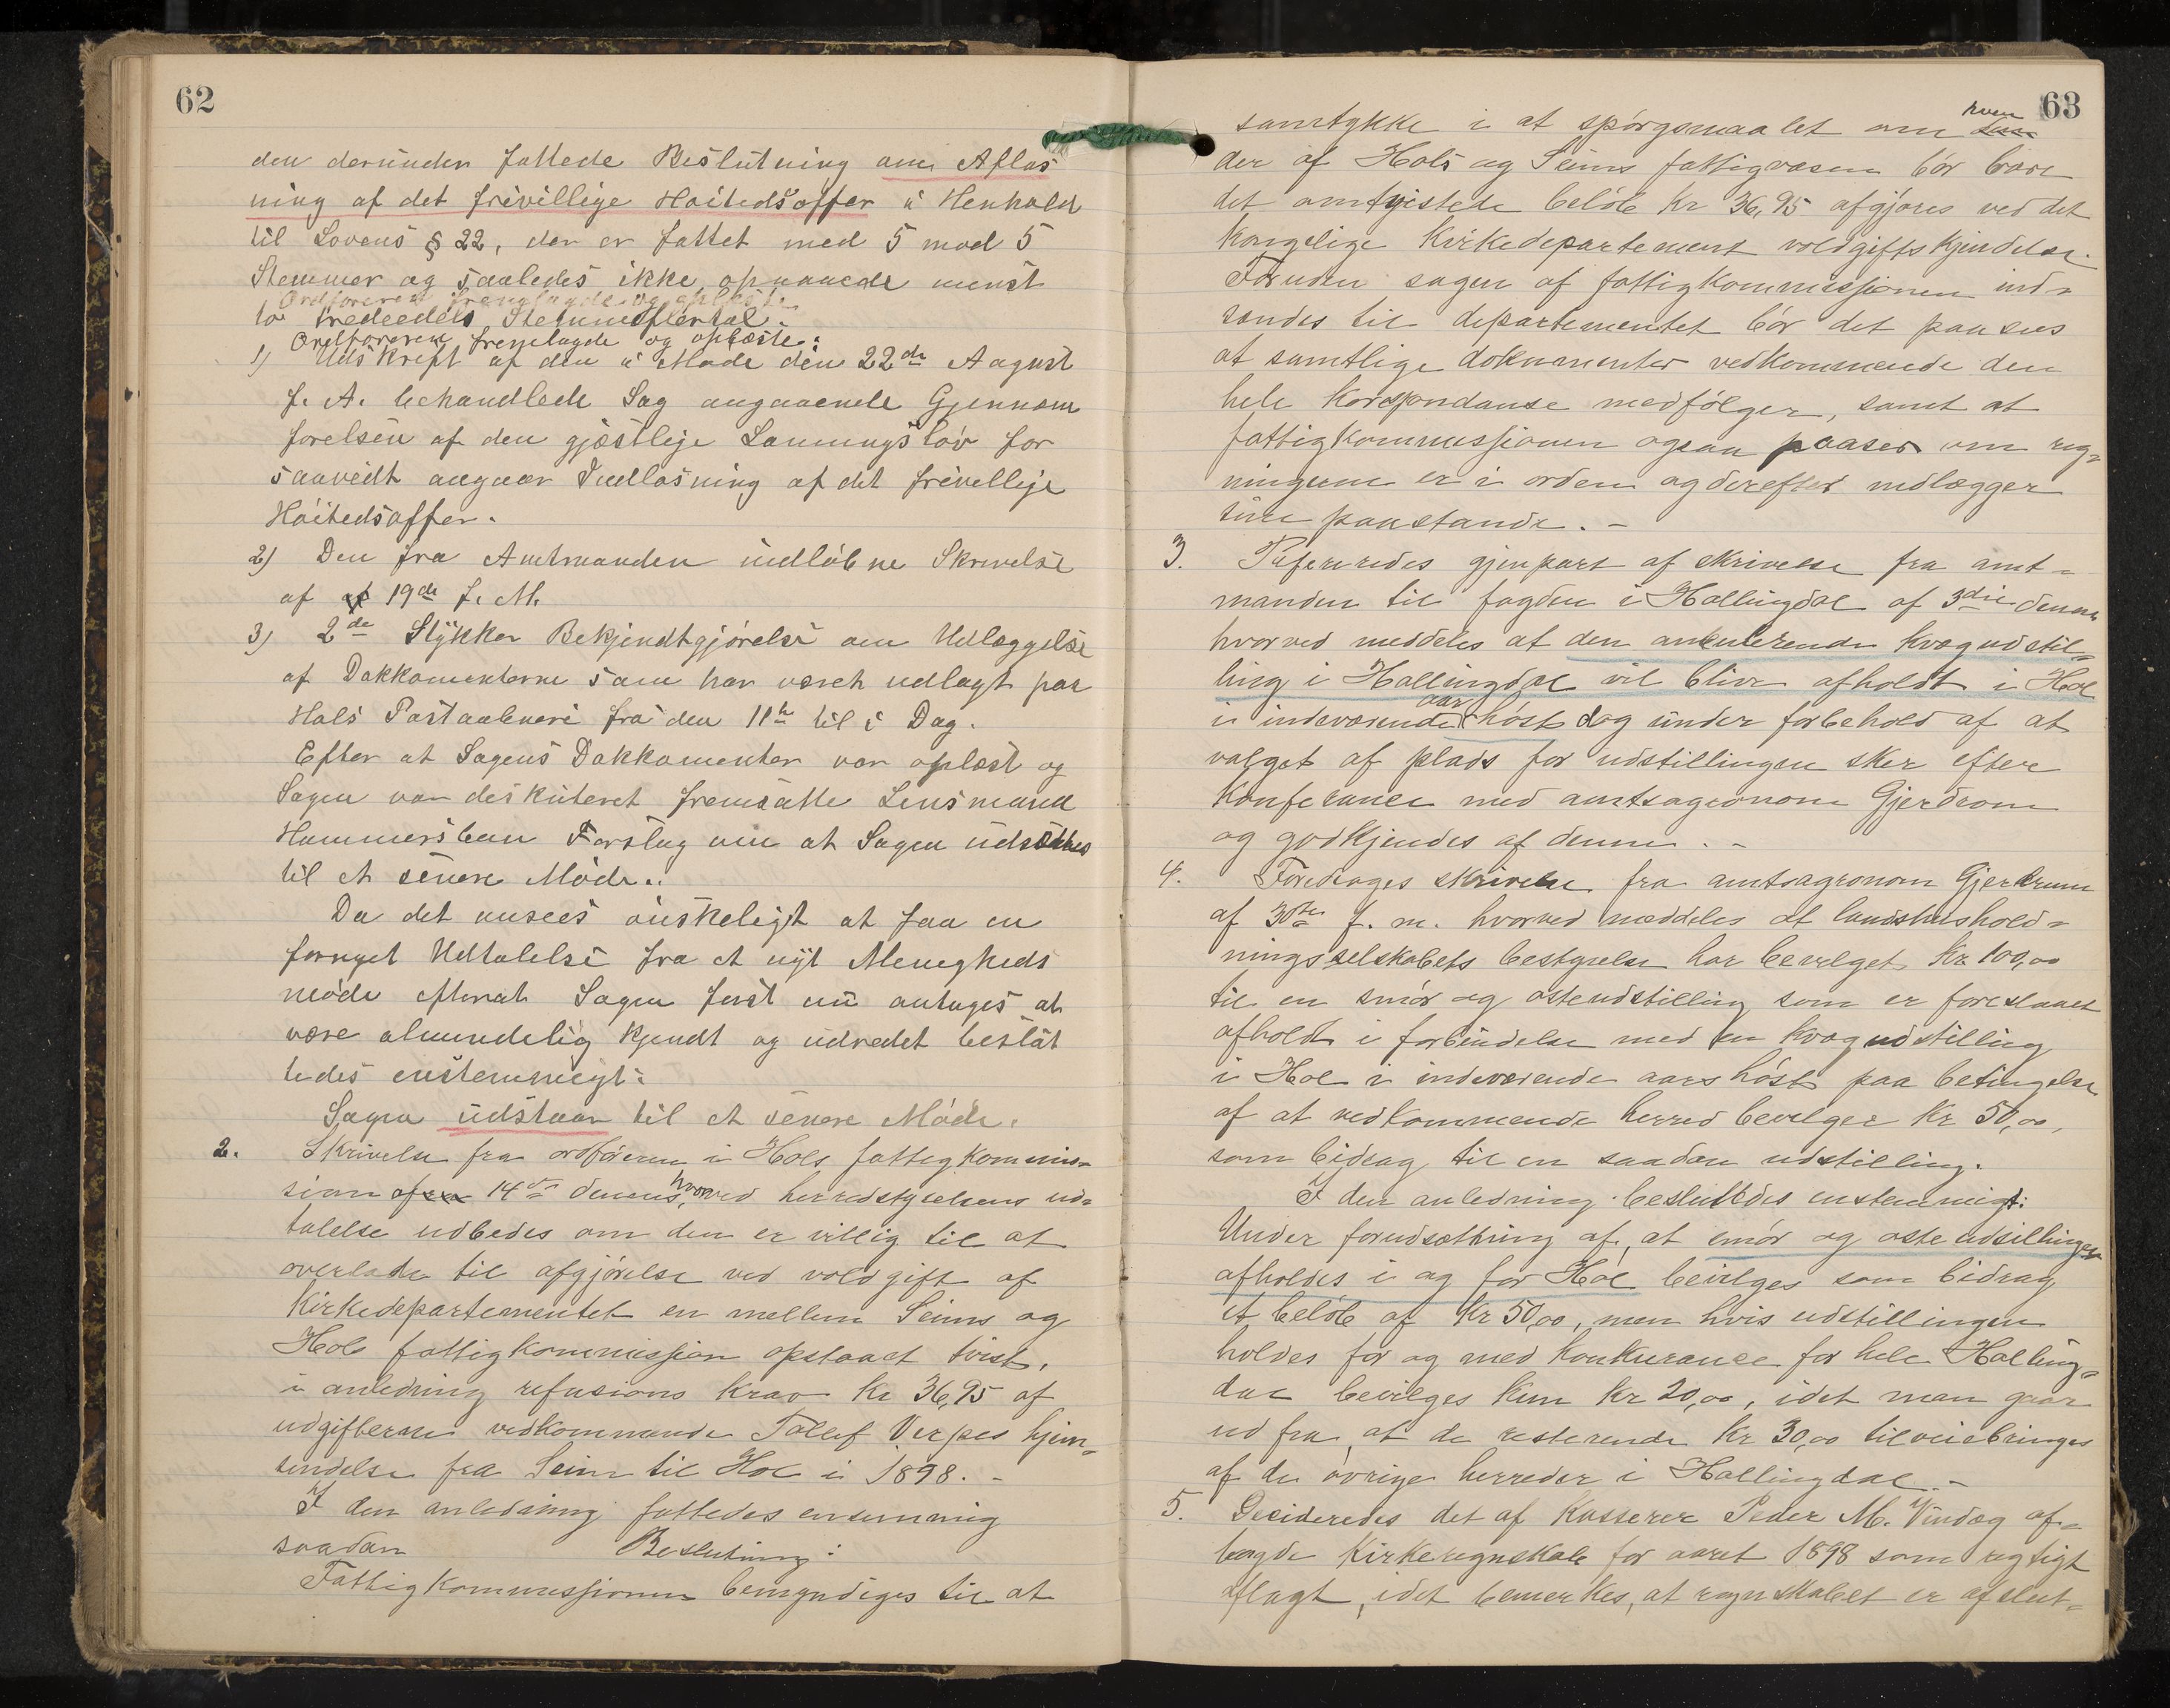 62
den derunder fattede Beslutning om Afløs
ning af det frivillige Høitedsoffer i Henhold
til Lovens § 22, der er fattet med 5 mod 5
Stemmer og saaledes ikke opnaaede menst
Ordføreren fremlagde og oplæste
to trediedels Stemmeflertal.
Ordføreren fremlagde og oplæste:
1) Udskrift af den i Møde den 22de August
f. A. behandlede Sag angaaende Gjennem
førelsen af den gjæstlige Lønningslov for
saavidt angaar Indløsning af det frivellige
Høitedsoffer.
2) Den fra Amtmanden indløbne Skrivelse
af af 19de f. M.
3) 2de Stykker Bekjendtgjørelse om Udlæggelse
af Dokkomenterne som har været udlagt paa
Hols Postaabneri fra den 11te til i Dag.
Efter at Sagens Dokkomenter var oplæst og
Sagen var deskuteret fremsatte Lensmand
Hammersbøen Forslag om at Sagen udsættes
til et senere Møde.
Da det ansees ønskeligt at faa en
fornyet Udtalelse fra et nyt Menigheds
møde efterat Sagen først nu antages at
være almindelig kjendt og udredet beslut
tedes enstemmigt:
Sagen udstaar til et senere Møde.
2. Skrivelse fra ordføreren i Hols fattigkommis-
sion af 14de dennes, hvorved herredstyrelsens ud-
talelse udbedes om den er villig til at
overlade til afgjørelse ved voldgift af
Kirkedepartementet en mellem Seims og
Hols fattigkommission opstaaet tvist,
i anledning refusions krav Kr 36,95 af
udgifterne vedkommende Tollef Verpes hjem-
sendelse fra Seim til Hol i 1898. -
I den anledning fattedes ensemmig
saadan Beslutning:
Fattigkommissionen bemyndiges til at
63
samtykke i at spørgsmaalet om hvem
der af Hols og Seims fattigvæsen bør bære
det omtvistede beløb Kr 36,95 afgjøres ved det
Kongelige Kirkedepartement voldgiftskjendelse.
Føruden sagen af fattigkommissionen ind-
sendes til departementet bør det paasees
at samtlige dokumenter vedkommende den
hele korespondanse medfølger, samt at
fattigkommissionen ogsaa paaser om reg-
ningerne er i orden og derefter nedlægger
sine paastande. -
3. Refereredes gjenpart af skrivelse fra amt-
manden til fogden i Hallingdal af 3die dennes
hvorved meddeles at den ambulerende kvægudstil-
ling i Hallingdal vil blive afholdt i Hol
i indeværende aars høst dog under forbehold af at
valget af plads for udstillingen sker efter
Konferance med amtsagronom Gjerdrom
og godkjendes af denne. -
4. Foredrages skrivelse fra amtsagronom Gjerdrum
af 30te f. m. hvorved meddeles at landshushold-
ningsselskabets bestyrelse har bevilget Kr 100,00
til en smør og osteudstilling som er foreslaaet
afholdt i forbindelse med en kvægudstilling
i Hol i indeværende aars høst paa betingelse
af at vedkommende herred bevilger Kr 50,00,
som bidrag til en saadan udstilling.
I den anledning besluttedes enstemmigt:
Under forudsætning af, at smør og oste udsillingen
afholdes i og for Hol bevilges som bidrag
et beløb af Kr 50,00, men hvis udstillingen
holdes for og med konkurance for hele Halling-
dal bevilges kun Kr 20,00, idet man gaar
ud fra at de resterende Kr 30,00 tilveiebringes
af de øvrige herreder i Hallingdal. -
5. Decideredes det af Kasserer Peder M. Vindæg af-
lagde Kirkeregnskab for aaret 1898 som rigtigt
aflagt, idet bemerkes, at regnskabet er afslut-